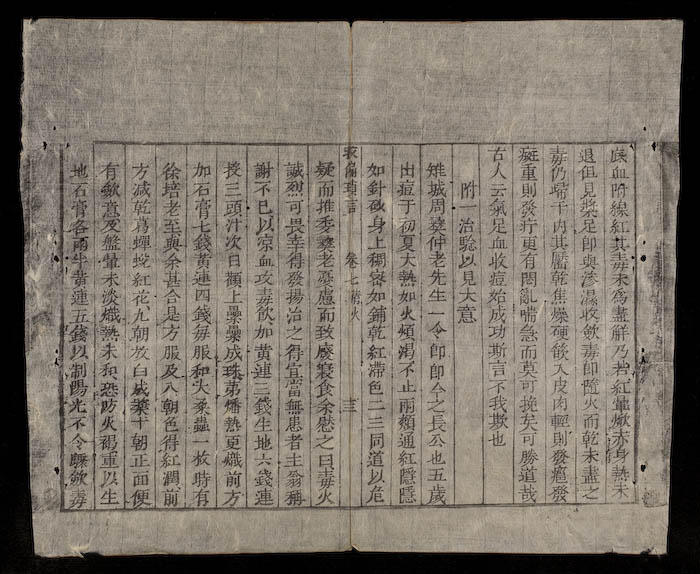 底血附線紅其毒未為盡解乃若紅暈焮赤身熱未
退但見漿足即與滲濕收斂毒即隨火而乾未盡之
毒仍歸于内其靨乾焦燥硬嵌入皮肉輕則發癍發
癡重則發疔更有悶亂喘急而莫可挽矣可勝道哉
古人云氣足血收痘始成功斯言不我欺也
附一治驗以見大意
雉城周蓼仲老先生一令郎即今之長公也五歲
出痘于初夏大熱如火煩渴不止兩顴通紅隱隱
如針砭身上稠密如鋪乾紅滯色二三同道以危
救偏瑣言 卷七 三
疑而推委蓼老憂慮而致廢寢食余慰之曰毒火
誠烈可畏幸得發揚治之得宜當無患者主翁稱
謝不已以凉血攻毒飲加黄連三錢生地六錢連
投三頭汁次日顴上纍纍成珠第燔熱更熾前方
加石膏七錢黄連四錢每服和大桑蟲一枚時有
徐培老至與余甚合是方服及八朝色得紅潤前
方減乾葛蟬蛻紅花九朝放白成漿十朝正面便
有斂意及盤暈未淡熾熱未和恐防火褐重以生
地石膏各兩半黄連五錢以制陽光不令驟斂毒